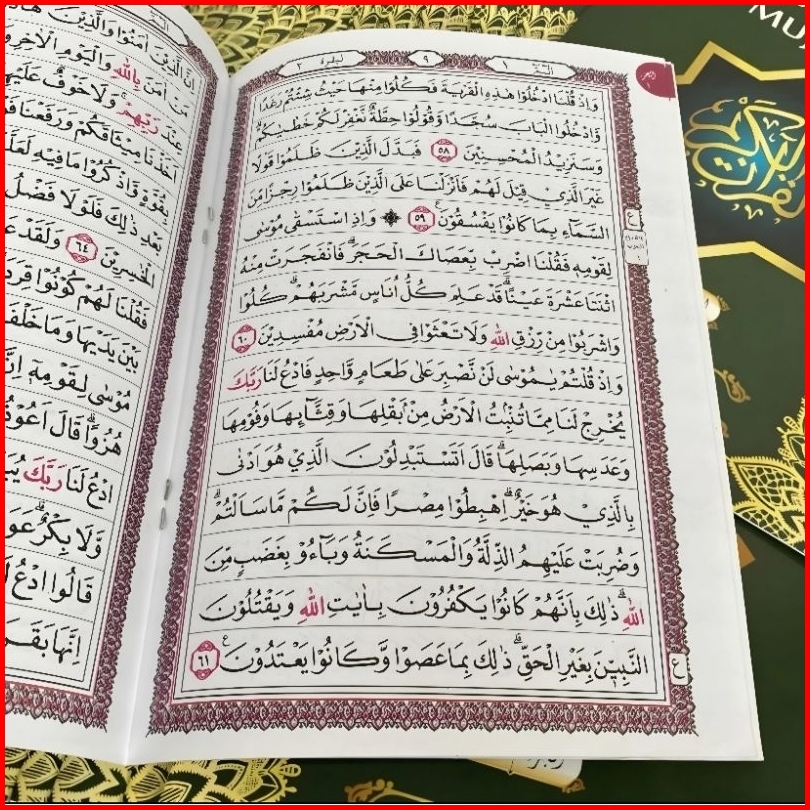 البقرة ٢
٩
الم ١
وَاِذْ قُلْنَا ادْخُلُوْا هٰذِهِ الْقَرْيَةَ فَكُلُوْا مِنْهَا حَيْثُ شِئْتُمْ رَغَدًا
وَّادْخُلُوا الْبَابَ سُجَّدًا وَّقُوْلُوْا حِطَّةٌ نَّغْفِرْ لَكُمْ خَطٰيٰكُمْ ۗ
وَسَنَزِيْدُ الْمُحْسِنِيْنَ ٥٨ فَبَدَّلَ الَّذِيْنَ ظَلَمُوْا قَوْلًا
غَيْرَ الَّذِيْ قِيْلَ لَهُمْ فَاَنْزَلْنَا عَلَى الَّذِيْنَ ظَلَمُوْا رِجْزًا مِّنَ
السَّمَاۤءِ بِمَا كَانُوْا يَفْسُقُوْنَ ࣖ ٥٩ ۞ وَاِذِ اسْتَسْقٰى مُوْسٰى
لِقَوْمِهٖ فَقُلْنَا اضْرِبْ بِّعَصَاكَ الْحَجَرَ ۗ فَانْفَجَرَتْ مِنْهُ
اثْنَتَا عَشْرَةَ عَيْنًا ۗ قَدْ عَلِمَ كُلُّ اُنَاسٍ مَّشْرَبَهُمْ ۗ كُلُوْا
وَاشْرَبُوْا مِنْ رِّزْقِ اللّٰهِ وَلَا تَعْثَوْا فِى الْاَرْضِ مُفْسِدِيْنَ ٦٠
وَاِذْ قُلْتُمْ يٰمُوْسٰى لَنْ نَّصْبِرَ عَلٰى طَعَامٍ وَّاحِدٍ فَادْعُ لَنَا رَبَّكَ
يُخْرِجْ لَنَا مِمَّا تُنْۢبِتُ الْاَرْضُ مِنْۢ بَقْلِهَا وَقِثَّاۤىِٕهَا وَفُوْمِهَا
وَعَدَسِهَا وَبَصَلِهَا ۗ قَالَ اَتَسْتَبْدِلُوْنَ الَّذِيْ هُوَ اَدْنٰى
بِالَّذِيْ هُوَ خَيْرٌ ۗ اِهْبِطُوْا مِصْرًا فَاِنَّ لَكُمْ مَّا سَاَلْتُمْ ۗ
وَضُرِبَتْ عَلَيْهِمُ الذِّلَّةُ وَالْمَسْكَنَةُ وَبَاۤءُوْ بِغَضَبٍ مِّنَ
اللّٰهِ ۗ ذٰلِكَ بِاَنَّهُمْ كَانُوْا يَكْفُرُوْنَ بِاٰيٰتِ اللّٰهِ وَيَقْتُلُوْنَ
النَّبِيّٖنَ بِغَيْرِ الْحَقِّ ۗ ذٰلِكَ بِمَا عَصَوْا وَّكَانُوْا يَعْتَدُوْنَ ࣖ ٦١
اِنَّ الَّذِيْنَ اٰمَنُوْا وَالَّذِيْنَ
مَنْ اٰمَنَ بِاللّٰهِ وَالْيَوْمِ الْاٰخِرِ
عِنْدَ رَبِّهِمْ ۚ وَلَا خَوْفٌ عَلَيْهِمْ
اَخَذْنَا مِيْثَاقَكُمْ وَرَفَعْنَا
بِقُوَّةٍ وَّاذْكُرُوْا مَا فِيْهِ
بَعْدِ ذٰلِكَ فَلَوْلَا فَضْلُ
الْخٰسِرِيْنَ ٦٤ وَلَقَدْ
فَقُلْنَا لَهُمْ كُوْنُوْا
بَيْنَ يَدَيْهَا وَمَا
مُوْسٰى لِقَوْمِهٖٓ
هُزُوًا ۗ قَالَ اَعُوْذُ
ادْعُ لَنَا رَبَّكَ
وَّلَا بِكْرٌ ۗ
قَالُوا ادْعُ
اِنَّهَا
MU